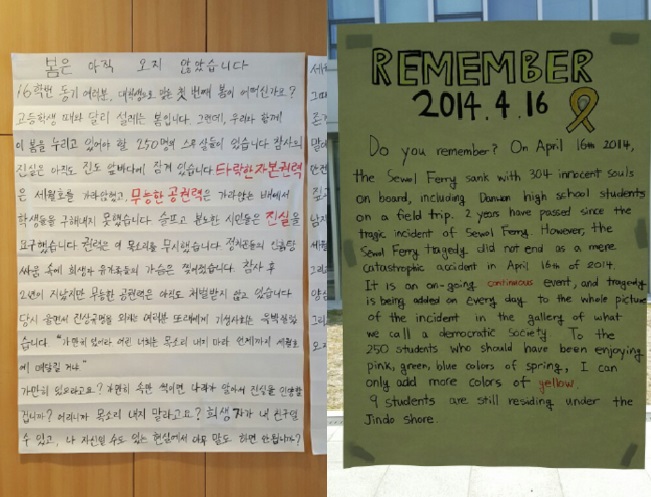 봄은 아직 오지 않았습니다
16학번 동기 여러분, 대학생으로 맞는 첫 번째 봄이 어떠신가요?
고등학생 때와 달리 설레는 봄입니다. 그런데, 우리와 함께
이 봄을 누리고 있어야 할 250명의 스무 살들이 있습니다 참사의
진실은 아직도 진도 앞바다에 잠겨 있습니다 타락한 자본권력
은 세월호를 가라앉혔고, 무능한 공권력은 가라앉는 배에서
학생들을 구해내지 못했습니다 슬프고 분노한 시민들은 진실을
요구했습니다 권력은 이 목소리를 무시했습니다 정치꾼들의 진흙탕
싸움 속에 희생자 유가족들의 가슴은 찢어졌습니다. 참사 후
2년이 지났지만 무능한 공권력은 아직도 처벌받지 않고 있습니다
당시 울면서 진상규명을 외치는 여러분 또래에게 기성사회는 윽박질렀
습니다. "가만히 있어라 어린 너희는 목소리 내지 마라 언제까지 세월호
에 매달릴 거냐"
가만히 있으라고요? 가만히 속만 썩이면 나라가 알아서 진실을 인양할
겁니까? 어리니까 목소리 내지 말라고요? 희생자가 내 친구일
수 있고, 나 자신일 수도 있는 현실에서 아무 말도 하면 안됩니까?
REMEMBER
2014.4.16
Do you remember? On April 16th 2014,
the Sewol Ferry sank with 304 innocent souls
on board, including Danwon high school students
on a field trip. 2 years have passed since the
tragic incident of Sewol Ferry. However, the
Sewol Ferry tragedy did not end as a mere
catastrophic accident in April 16th of 2014.
It is an on-going continuous event, and tragedy
is being added on every day to the whole picture
of the incident in the gallery of what
we call a democratic society To the
250 students who should have been enjoying
pink, green, blue colors of spring, I can
only add more colors of yellow.
9 students are still residing under the
Jindo shore.